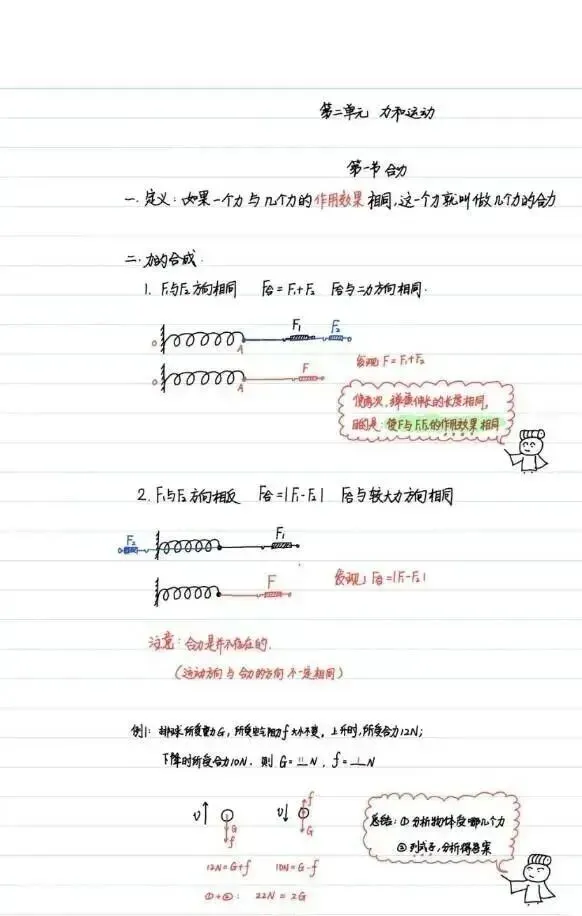 第二单元 力和运动
第一节 合力
一. 定义：如果一个力与几个力的作用效果相同,这一个力就叫做几个力的合力
二. 力的合成.
1. F₁与F₂方向相同 F合=F₁+F₂ F合与二力方向相同.
F₁ F₂
O A
F
O A
发现 F=F₁+F₂
使两次，弹簧伸长的长度相同,
目的是：使F与F₁F₂的作用效果相同
2. F₁与F₂方向相反 F合=|F₁-F₂| F合与较大力方向相同
F₂ F₁
F
发现 F合=|F₁-F₂|
注意：合力是并不存在的.
(运动方向与合力的方向不一定相同)
例1: 排球所受重力G, 所受空气阻力f大小不变, 上升时,所受合力12N;
下降时所受合力10N. 则 G=11N, f=1N
v G f
v f G
12N=G+f 10N=G-f
①+②: 22N=2G
总结：①分析物体受哪几个力
②列式子,分析得答案